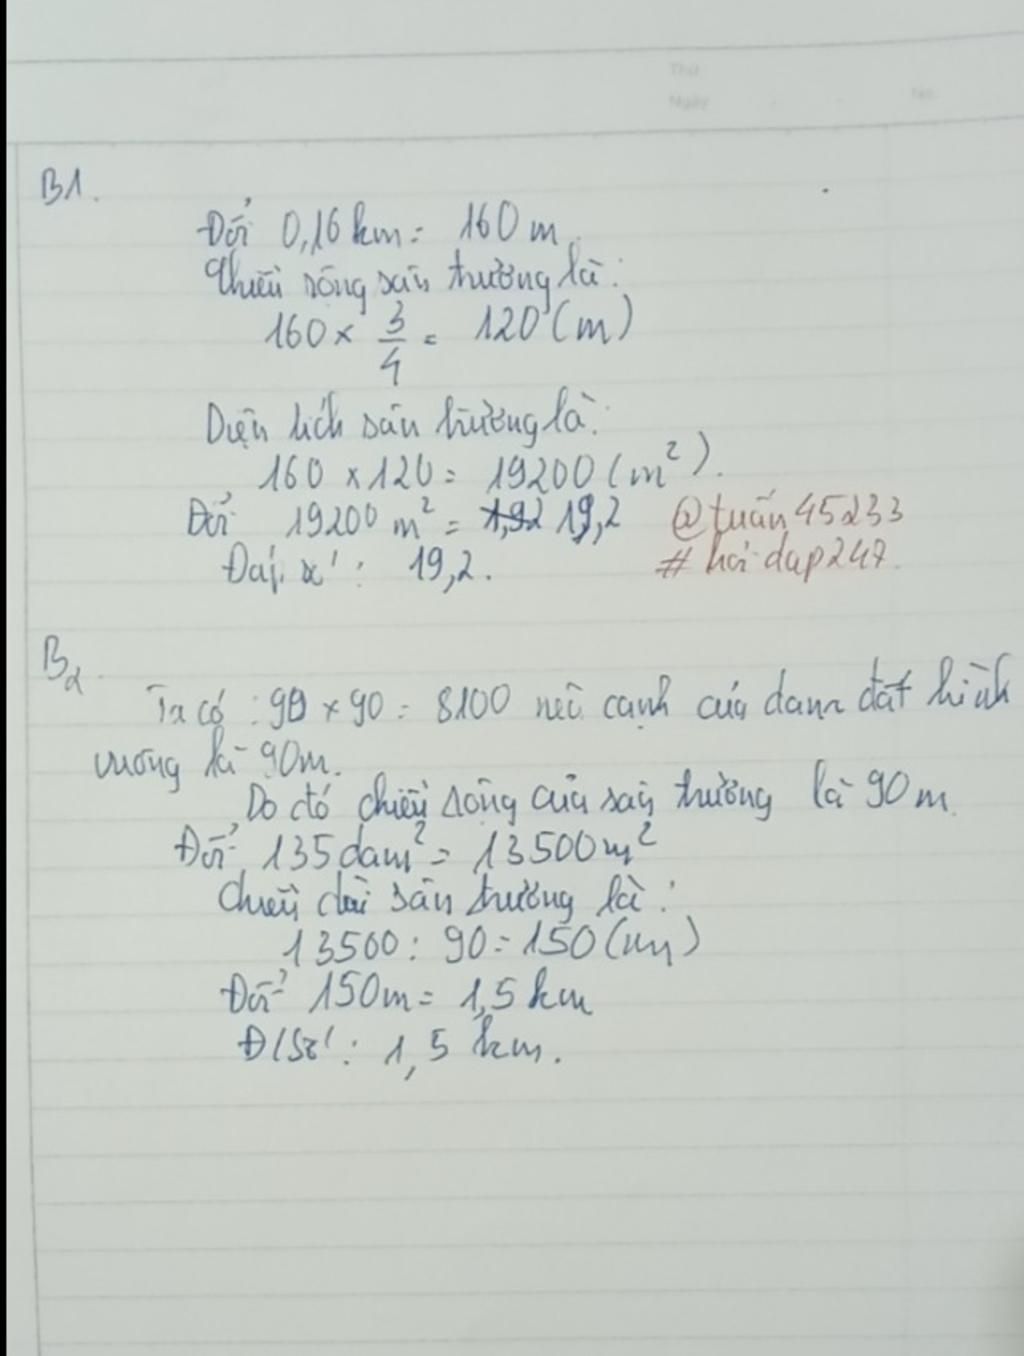 Thứ
Ngày
No.
B1.
Đổi 0,16 km = 160 m.
Chiều rộng sân trường là:
160 × 3/4 = 120 (m)
Diện tích sân trường là:
160 × 120 = 19200 (m²).
Đổi 19200 m² = 1,92 19,2 @tuấn45233
Đáp số: 19,2. # hoi dap247.
B2.
Ta có: 90 × 90 = 8100 nên cạnh của đám đất hình
vuông là 90m.
Do đó chiều rộng của sân trường là 90 m.
Đổi 135 dam² = 13500 m²
Chiều dài sân trường là:
13500 : 90 = 150 (m)
Đổi 150m = 1,5 km
Đ/Số: 1,5 km.